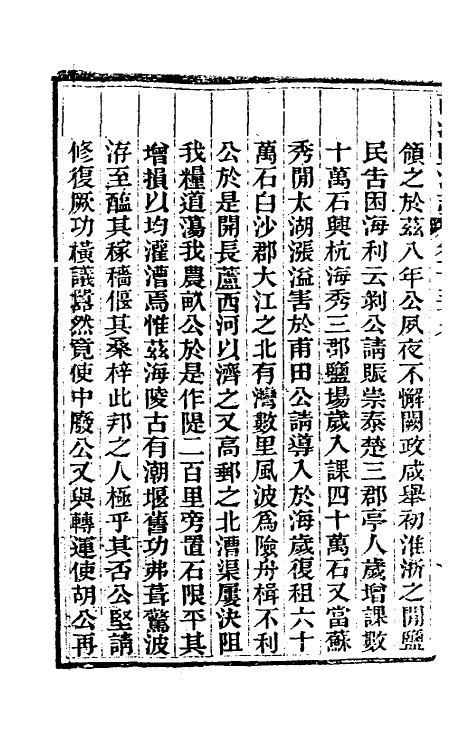 領之於茲八年公夙夜不懈闕政咸舉初淮浙之間鹽
民告困海利云剝公請賑崇泰楚三郡亭人歲增課數
十萬石興杭海秀三郡鹽場歲入課四十萬石又富蘇
秀閒太湖漲溢害於甫田公請導入於海歲復租六十
萬石白沙郡大江之北有灣數里風波爲險舟楫不利
公於是開長蘆西河以濟之又高郵之北漕渠屢決阻
我糧道蕩我農畝公於是作隄二百里旁置石限平其
增損以均灌漕焉惟茲海陵古有潮堰舊功弗葺驚波
洊至醢其稼穡偃其桑梓此邦之人極乎其否公堅請
修復厥功橫議囂然竟使中廢公又與轉運使胡公再